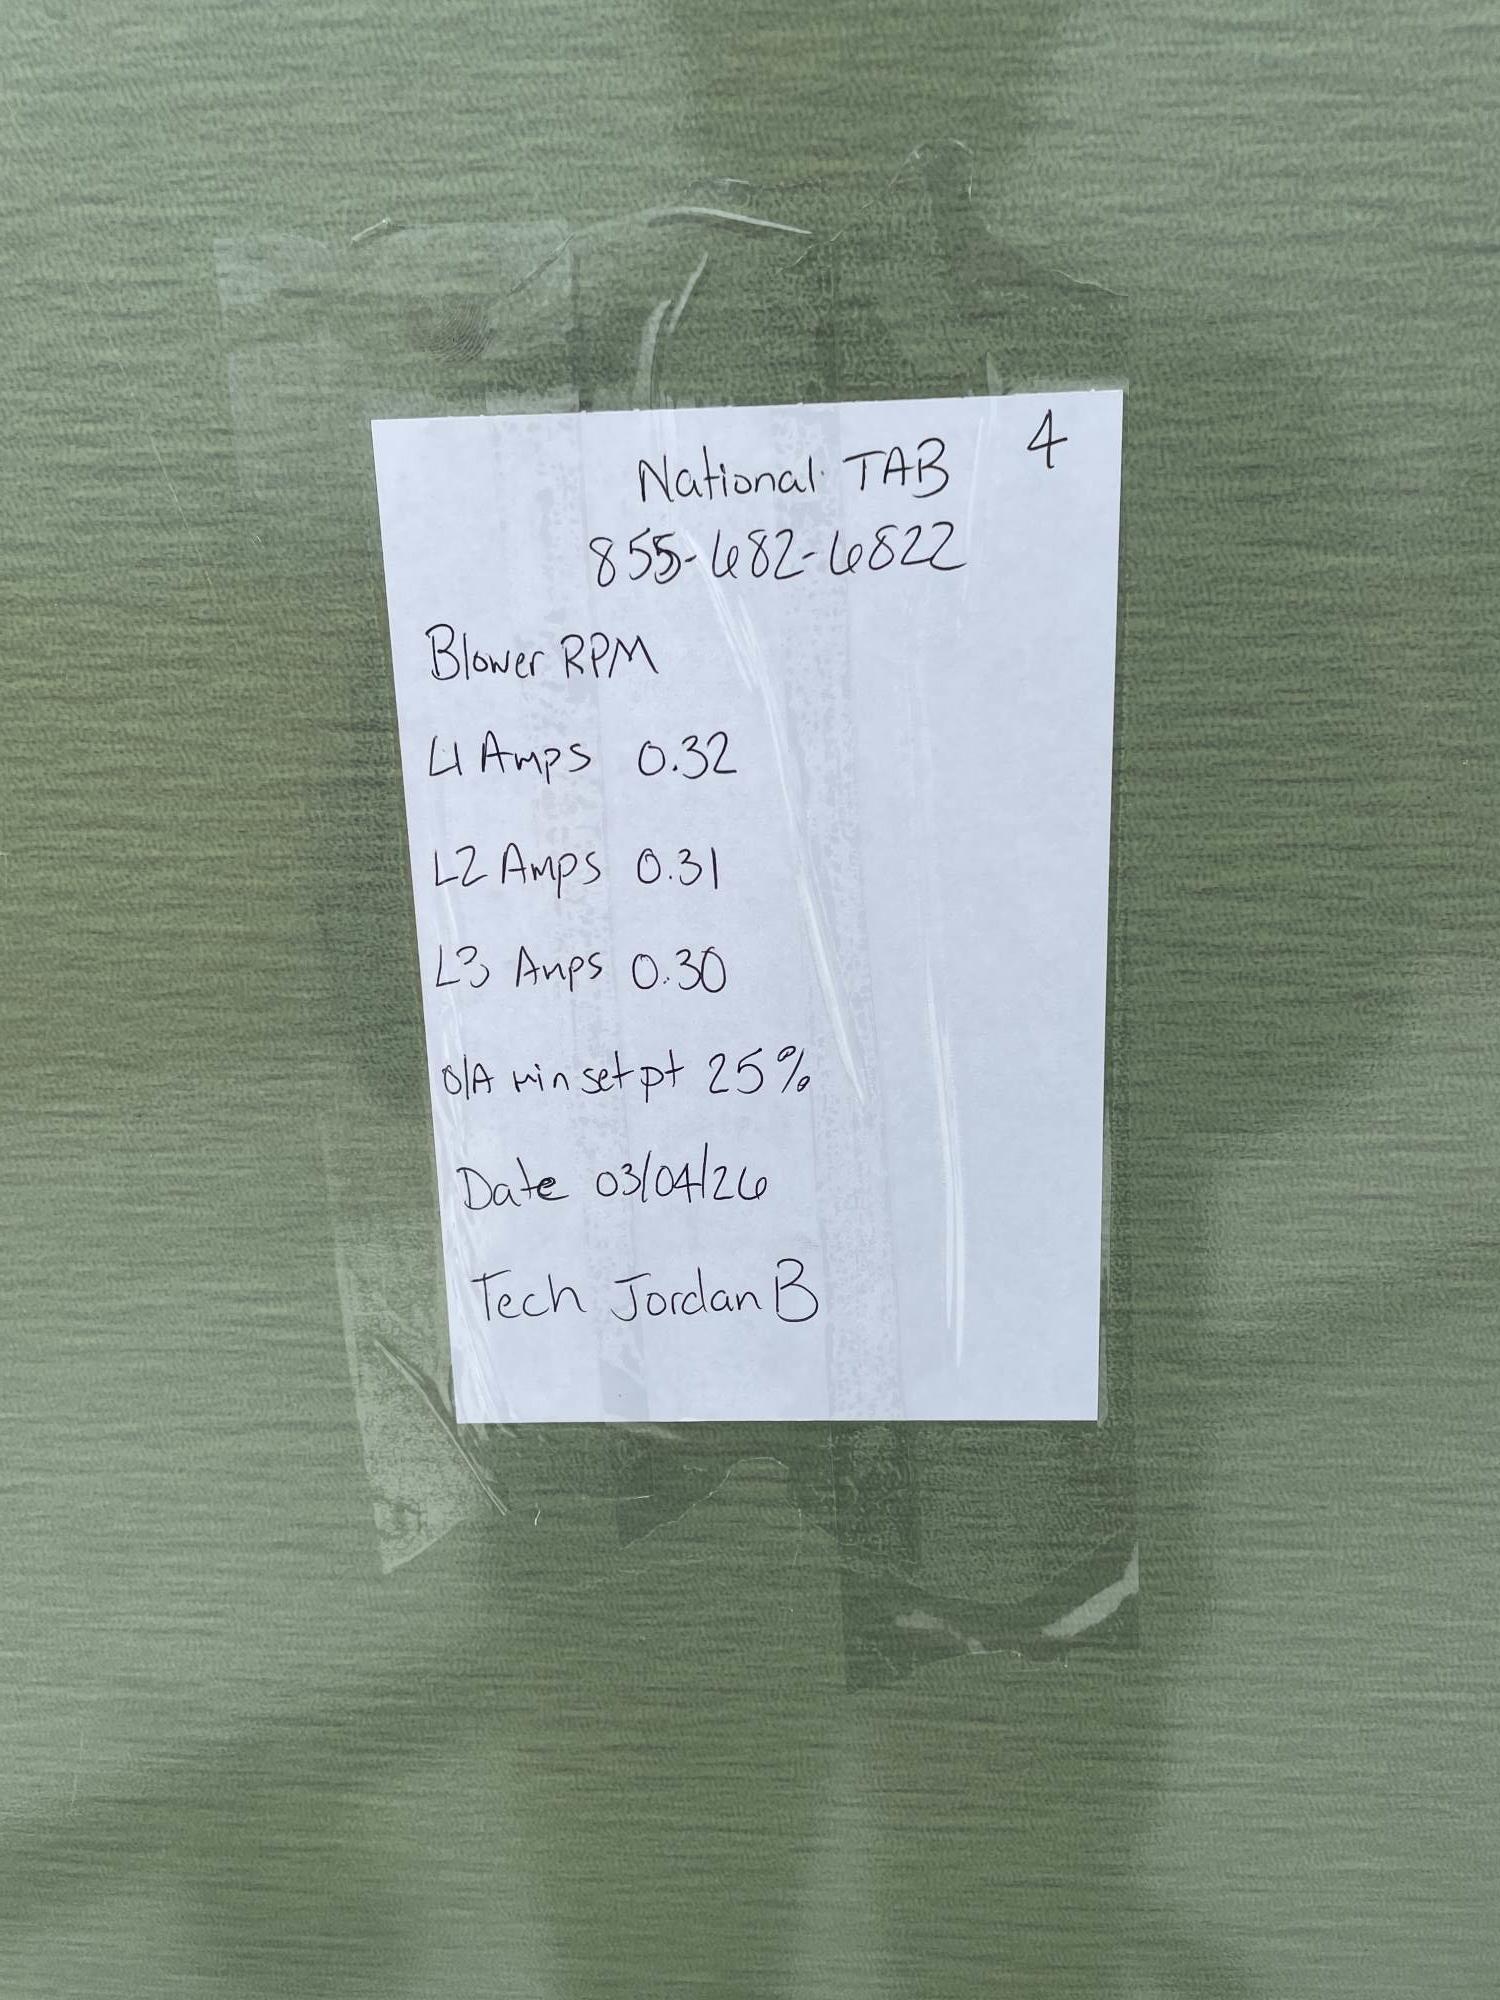 4
National TAB
855-682-6822
Blower RPM
L1 Amps 0.32
L2 Amps 0.31
L3 Amps 0.30
O/A min set pt 25%
Date 03/04/26
Tech Jordan B